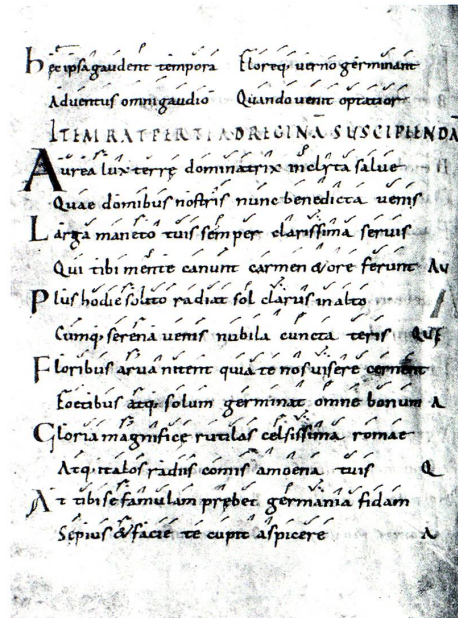 Hęc ipsa gaudent tempora Floreq; verno germinant
Adventus omni gaudio Quando venit optatior
ITEM RATPERTI AD REGINĀ SUSCIPIENDA
Aurea lux terrę dominatrix inclyta salve
Quae domibus nostris nunc benedicta venis
Larga maneto tuis semper clarissima servis
Qui tibi mente canunt carmen & ore ferunt Au
Plus hodie solito radiat sol clarus in alto
Cumq; serena venis nubila cuncta teris QUE
Floribus arva nitent quia te nos visere cernent
Foetibus atq; solum germinat omne bonum A
Gloria magnificę rutilas celsissima romae
Atq; italos radiis comis amoena tuis Q
At tibi se famulam prębet germania fidam
Sepius & facię te cupit aspicere A